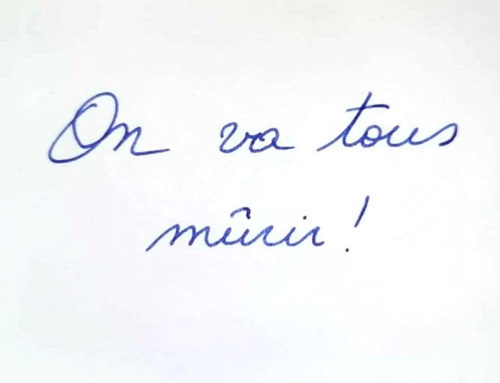 On va tous
mûrir !